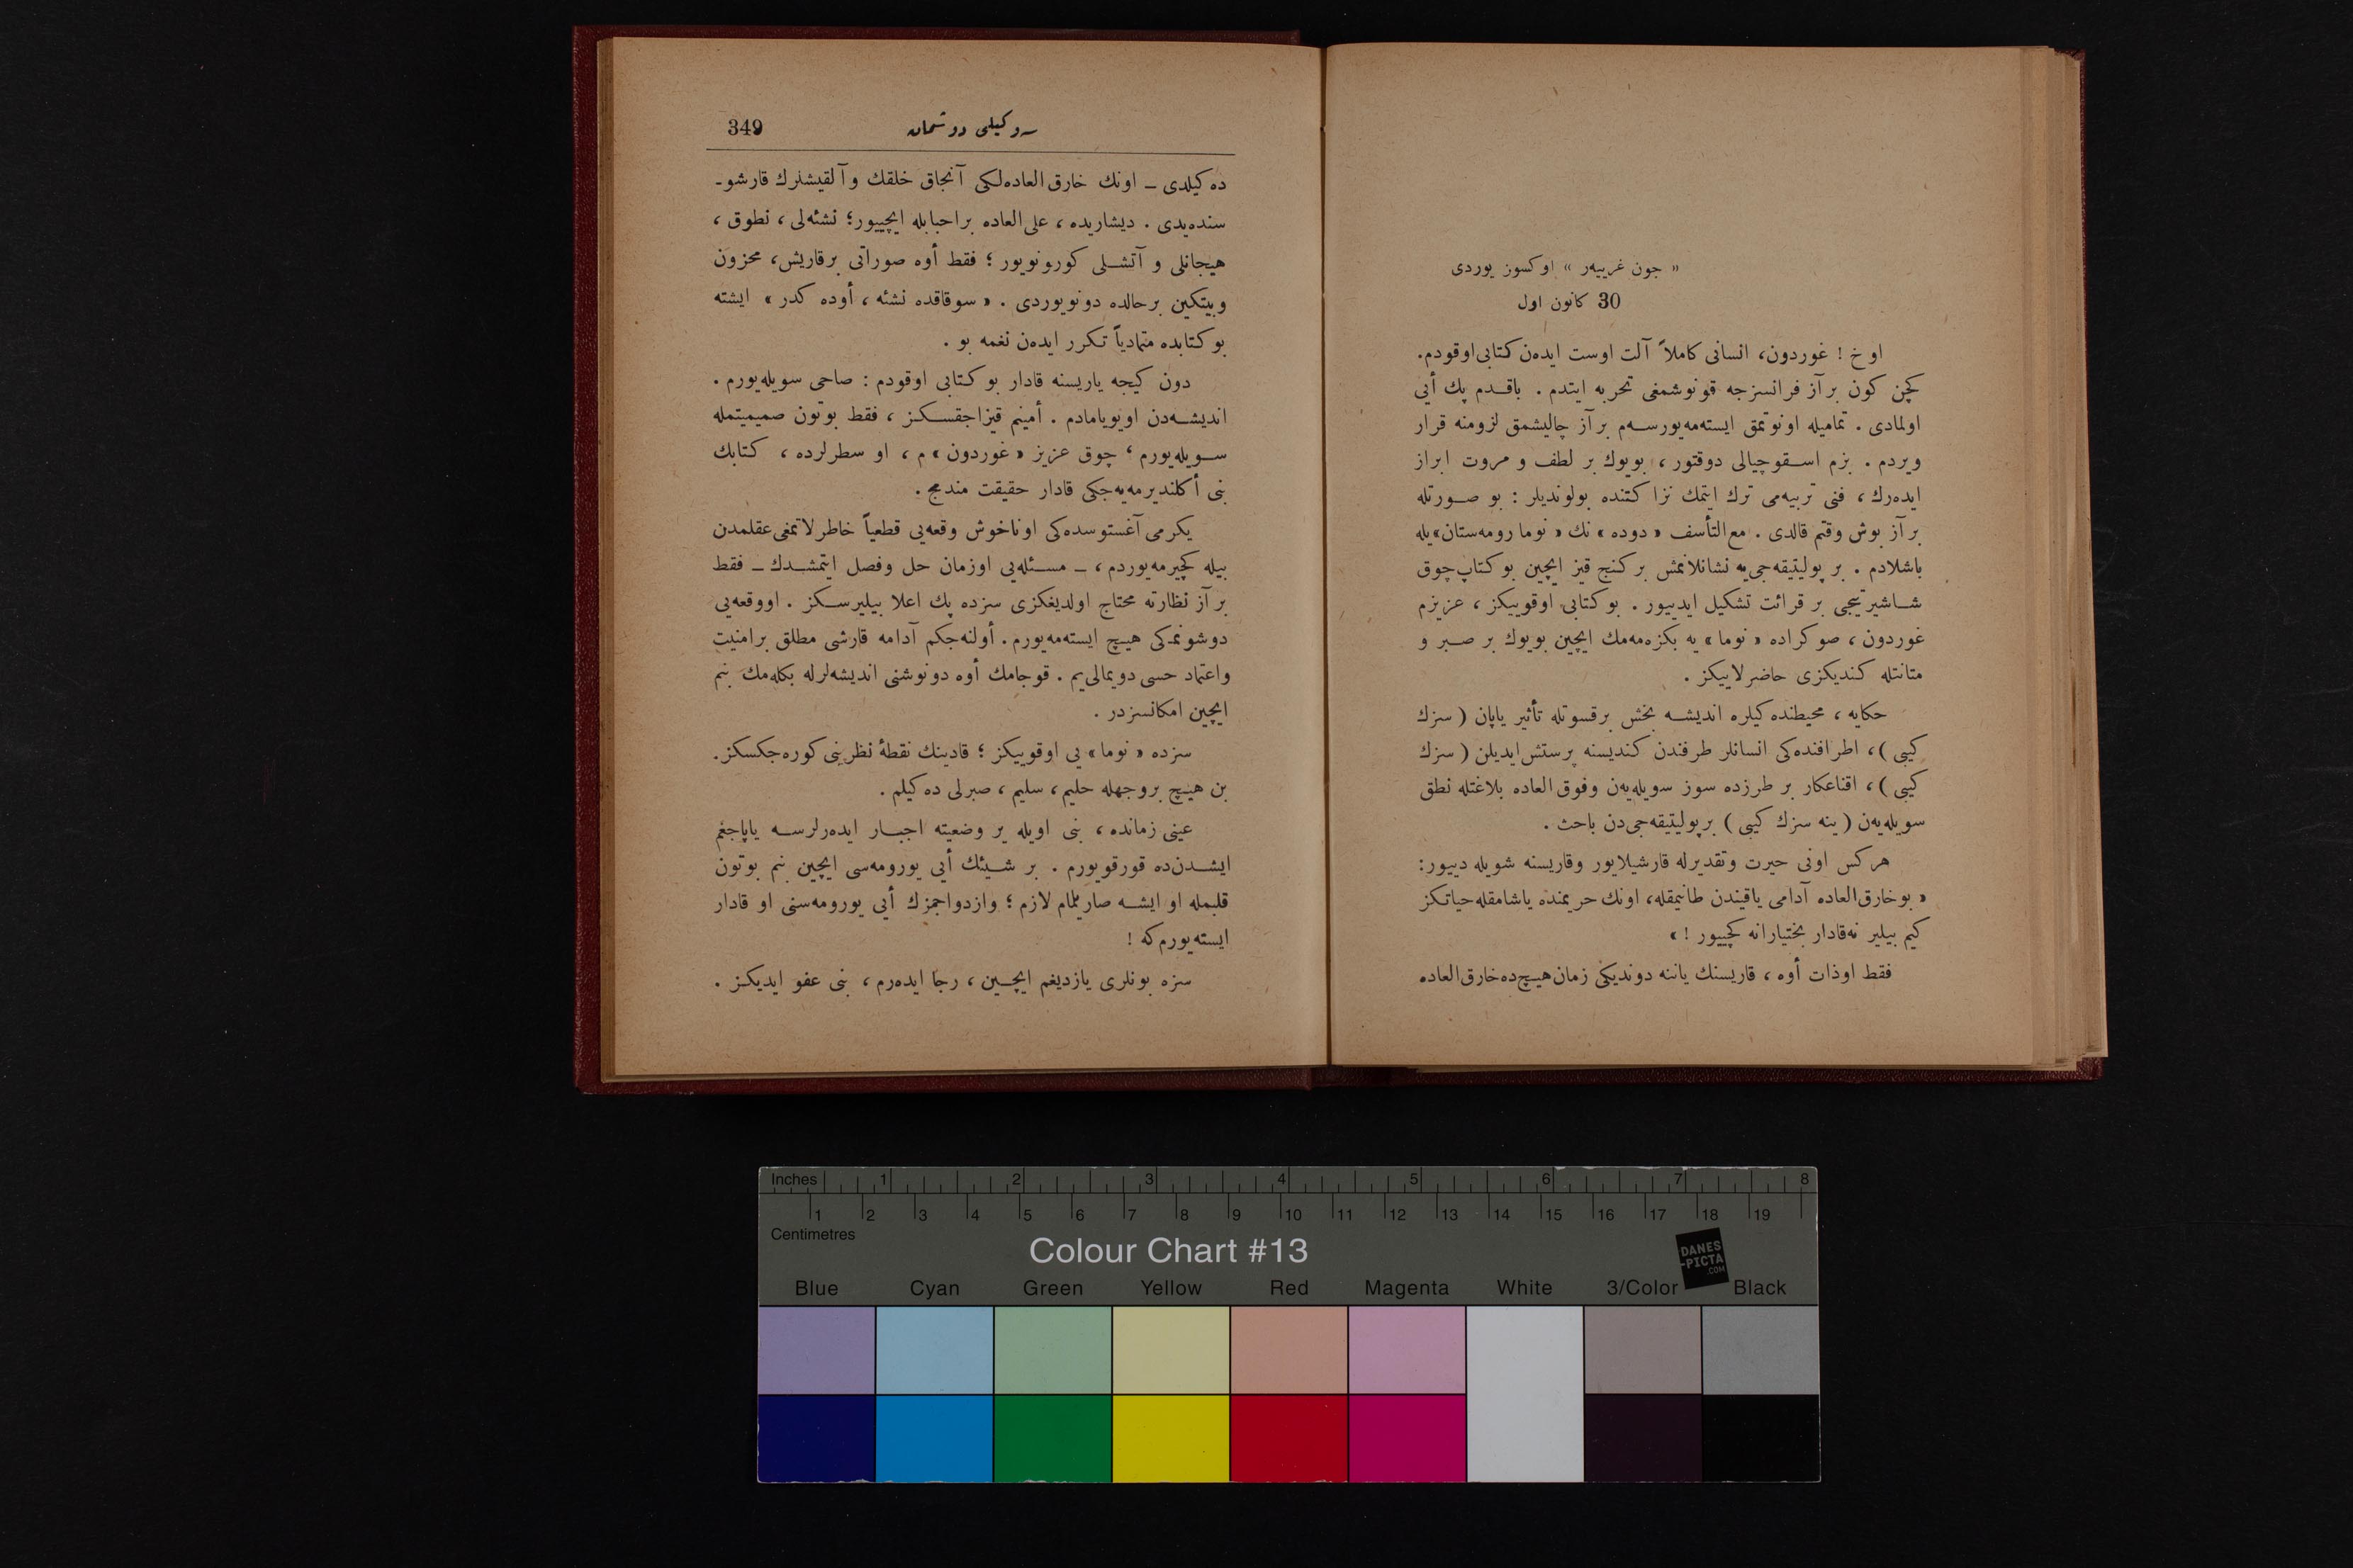 « جون غرییه‌ر » اوكسوز یوردی
30 كانون اول
اوخ ! غوردون، انسانی كاملاً آلت اوست ایدەن كتابی اوقودم.
كچن كون بر آز فرانسزجه قونوشمغی تجربه ایتدم . باقدم پك أیی
اولمادی . تمامیله اونوتمق ایسته‌مه‌یورسه‌م بر آز چالیشمق لزومنه قرار
ویردم . بزم اسقوچیالی دوقتور ، بویوك بر لطف و مروت ابراز
ایده‌رك ، فنی تربیه‌می ترك ایتمك نزاكتنده بولوندیلر : بو صورتله
بر آز بوش وقتم قالدی . مع‌التأسف « دوده » نك « نوما رومه‌ستان» یله
باشلادم . بر پولیتیقه‌جی‌یه نشانلانمش بر كنج قیز ایچین بو كتاپ چوق
شاشیرتیجی بر قرائت تشكیل ایدییور . بو كتابی اوقویيكز ، عزیزم
غوردون ، صوكراده « نوما » یه بكزه‌مه‌مك ایچین بویوك بر صبر و
متانتله كندیكزی حاضرلاییكز .
حكایه ، محیطنده‌كیلره اندیشه بخش بر قسوتله تأثیر یاپان ( سزك
كیبی ) ، اطرافنده‌كی انسانلر طرفندن كندیسنه پرستش ایدیلن ( سزك
كیبی ) ، اقناعكار بر طرزده سوز سویله‌یه‌ن وفوق العاده بلاغتله نطق
سویله‌یه‌ن ( ینه سزك كیبی ) بر پولیتیقه‌جی‌دن باحث .
هركس اونی حیرت وتقدیرله قارشیلایور وقاریسنه شویله دییور :
« بو خارق‌العاده آدامی یاقیندن طانیمقله، اونك حریمنده یاشامقله حیاتكز
كیم بیلیر نه‌قادار بختیارانه كچییور ! »
فقط اوذات أوه ، قاریسنك یاننه دوندیكی زمان هیچ‌ده خارق‌العاده
349
سه‌وكیلی دوشمان
ده‌كیلدی ـ اونك خارق العاده‌لكی آنجاق خلقك وآلقیشلرك قارشو-
سنده‌یدی . دیشاریده ، علی‌العاده بر احبابله ایچییور؛ نشئه‌لی ، نطوق ،
هیجانلی و آتشلی كورونویور ؛ فقط أوه صوراتی بر قاریش، محزون
وبیتكین بر حالده دونویوردی . « سوقاقده نشئه ، أوده كدر » ایشته
بو كتابده متمادیاً تكرر ایده‌ن نغمه بو .
دون كیجه یاریسنه قادار بو كتابی اوقودم : صاحی سویله‌یورم .
اندیشه‌دن اویویامادم . أمینم قیزاجقسكز ، فقط بوتون صمیمیتمله
سویله‌یورم ، چوق عزیز « غوردون » م ، او سطرلرده ، كتابك
بنی أكلندیرمه‌یه‌جكی قادار حقیقت مندمج .
یكرمی آغستوسده‌كی او ناخوش وقعه‌یی قطعیاً خاطرلاتمغی عقلمدن
بیله كچیرمه‌یوردم ، ـ مسئله‌یی اوزمان حل وفصل ایتمشدك ـ فقط
بر آز نظارته محتاج اولدیغكزی سزده پك اعلا بیلیرسكز . اووقعه‌یی
دوشونمه‌كی هیچ ایسته‌مه‌یورم . أوله‌نه‌جكم آدامه قارشی مطلق بر امنیت
واعتماد حسی دویمالی‌یم . قوجامك أوه دونوشنی اندیشه‌لرله بكله‌مك بنم
ایچین امكانسزدر .
سزده « نوما » یی اوقویيكز ؛ قادینك نقطۀ نظرینی كوره‌جكسكز.
بن هیچ بر وجهله حلیم ، سلیم ، صبرلی ده‌كیلم .
عینی زمانده ، بنی اویله بر وضعیته اجبار ایده‌رلرسه یاپاجغم
ایشدن‌ده قورقویورم . بر شیئك أیی یورومه‌سی ایچین بنم بوتون
قلبمله او ایشه صاریلمام لازم ؛ وازدواجمزك أیی یورومه‌سنی او قادار
ایسته‌یورم‌كه !
سزه بونلری یازدیغم ایچین ، رجا ایده‌رم ، بنی عفو ایدیكز .
Inches 1 2 3 4 5 6 7 8
1 2 3 4 5 6 7 8 9 10 11 12 13 14 15 16 17 18 19
Centimetres
Colour Chart #13
DANES
-PICTA
.COM
Blue Cyan Green Yellow Red Magenta White 3/Color Black